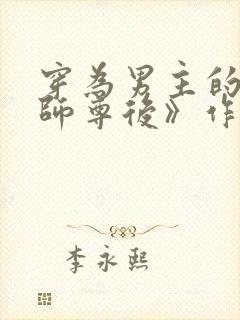 穿為男主的
師尊後》作
李永熙